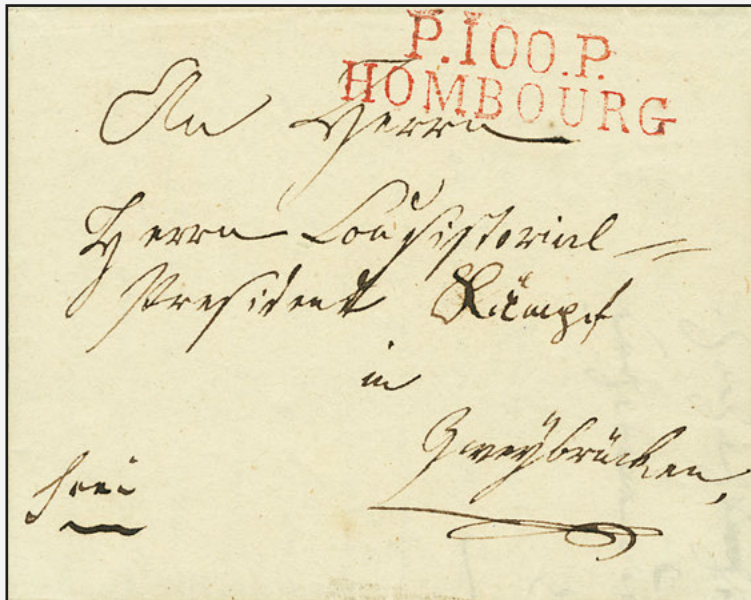 P.100.P.
HOMBOURG
An Herrn
Herrn Consistorial-
President Kämpf
in
Zweÿbrücken,
frei